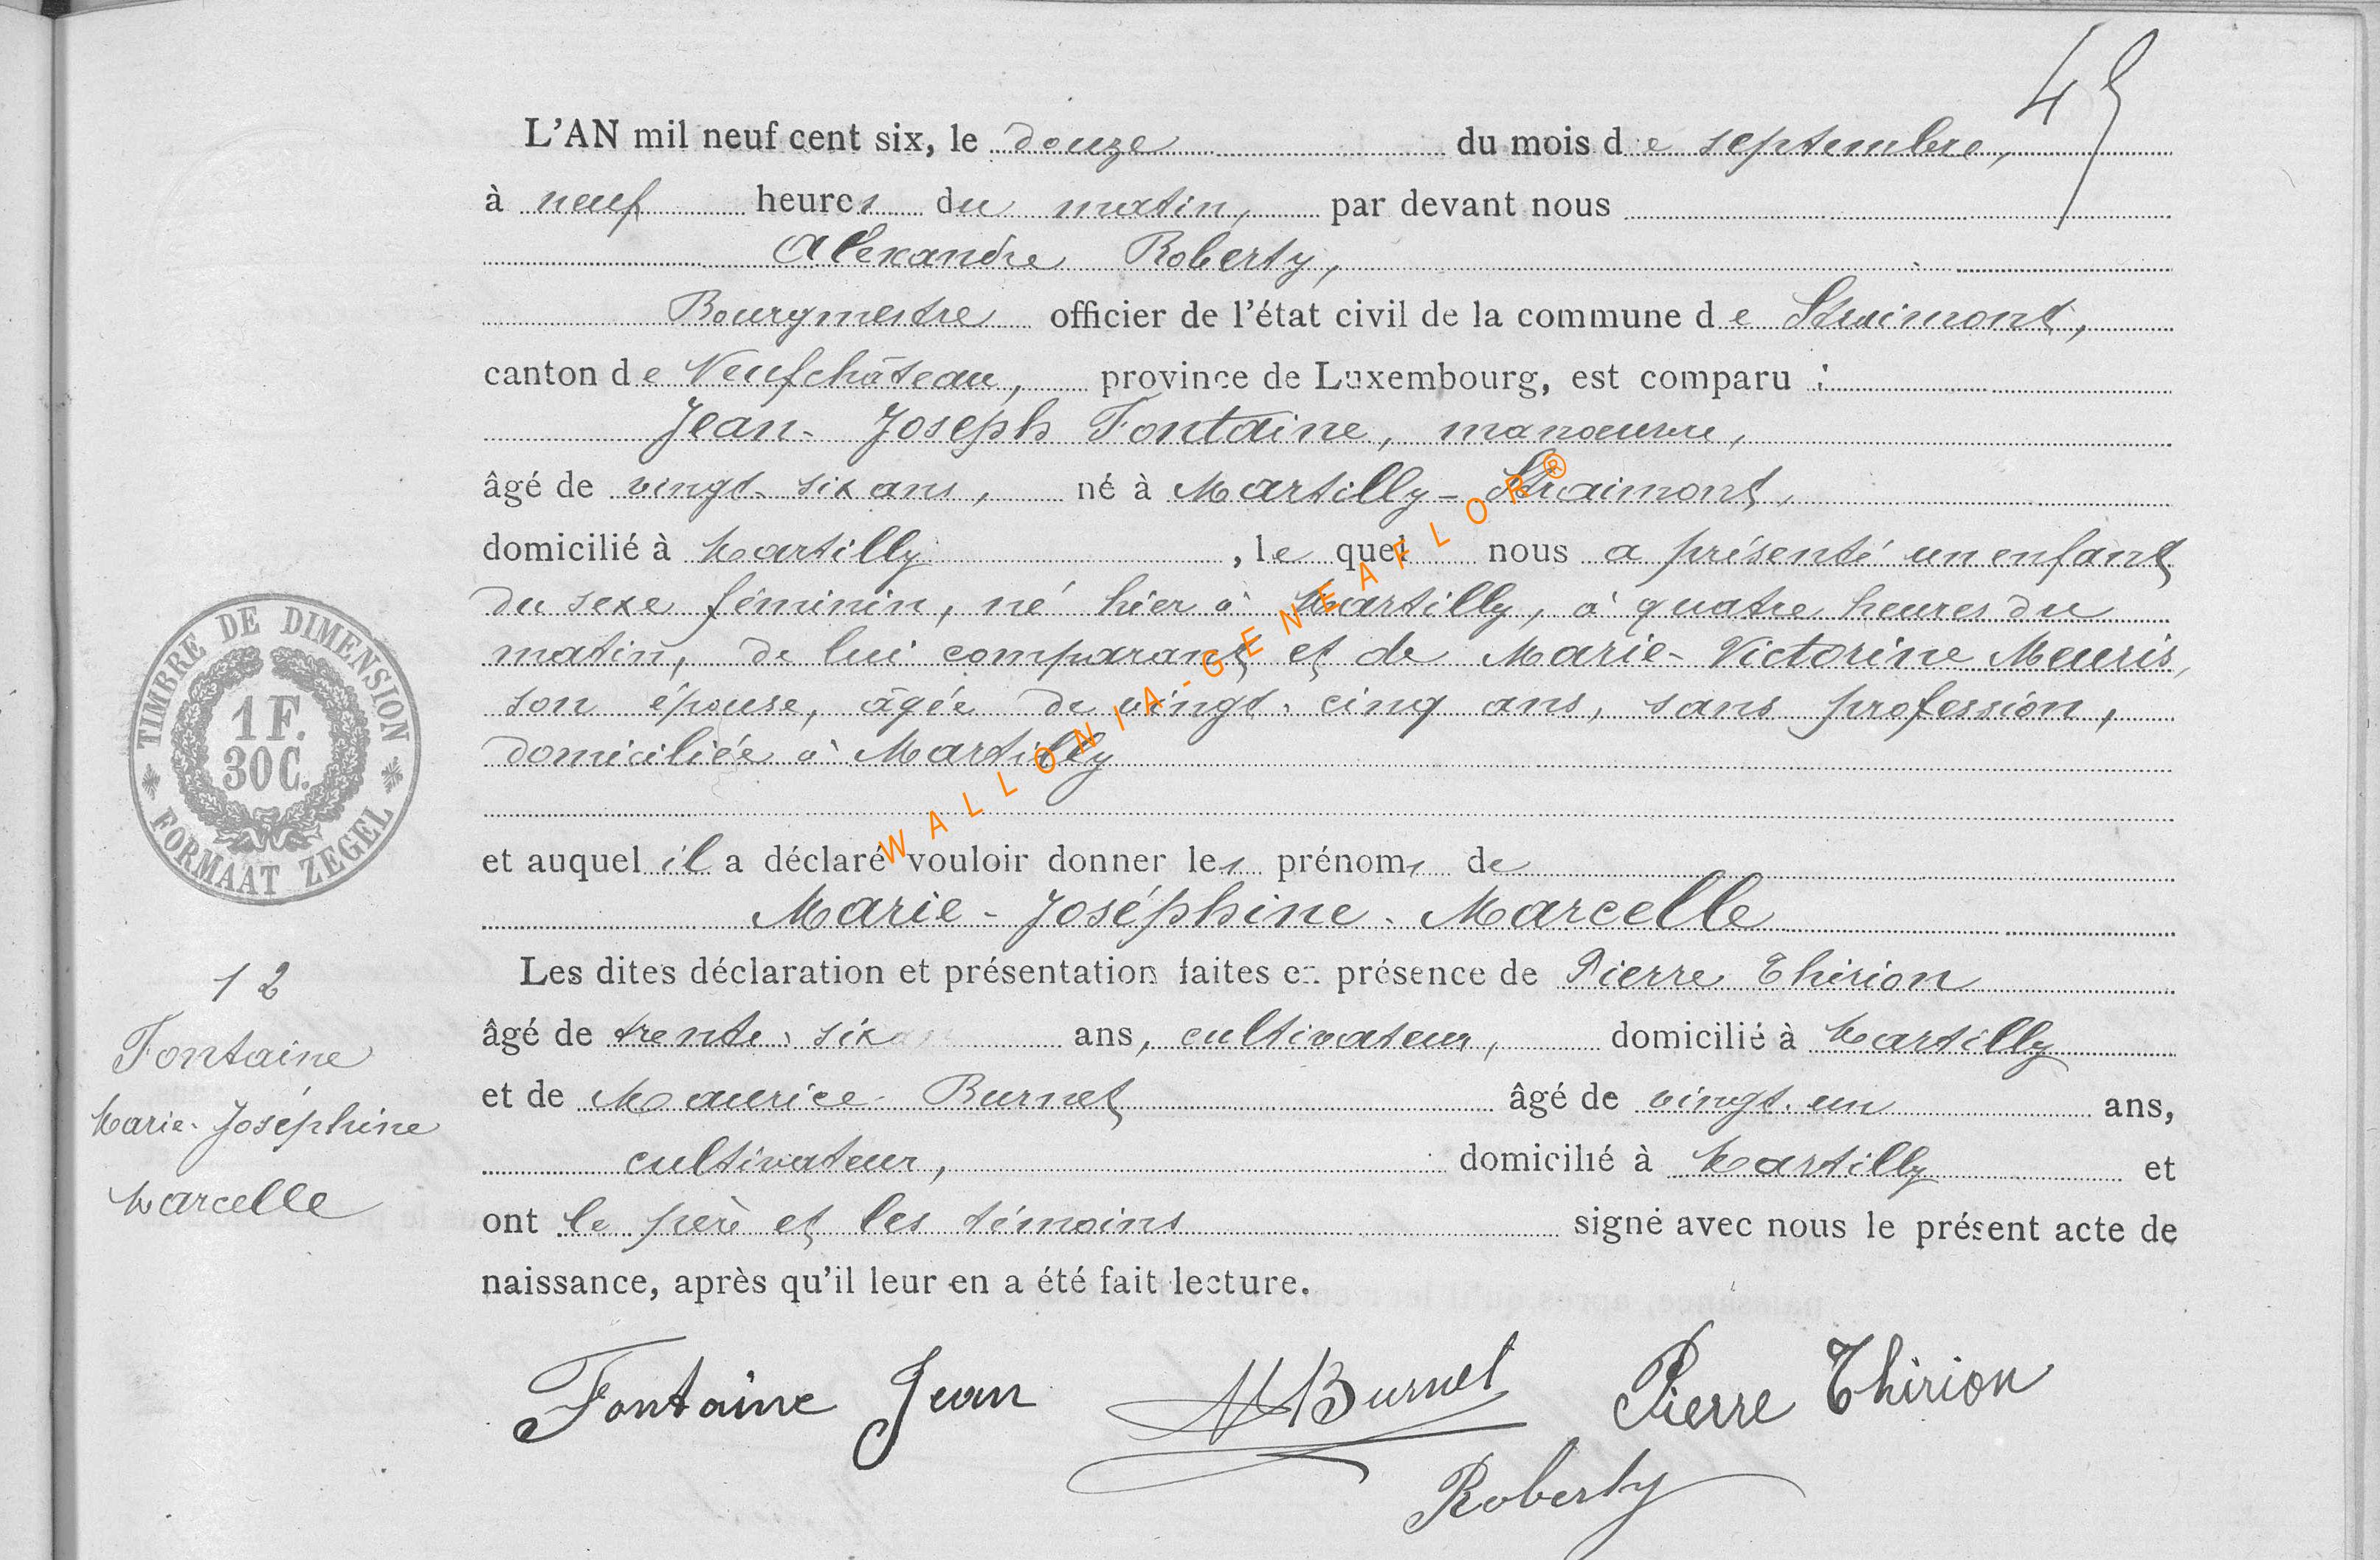 45
L'AN mil neuf cent six, le douze du mois de septembre,
à neuf heures du matin, par devant nous
Alexandre Roberty,
Bourgmestre officier de l'état civil de la commune de Straimont,
canton de Neufchâteau, province de Luxembourg, est comparu :
Jean-Joseph Fontaine, manoeuvre,
âgé de vingt-six ans, né à Martilly-Straimont,
domicilié à Martilly, le quel nous a présenté un enfant
du sexe féminin, né hier à Martilly, à quatre heures du
matin, de lui comparant et de Marie-Victorine Meuris,
son épouse, âgée de vingt-cinq ans, sans profession,
domiciliée à Martilly
et auquel il a déclaré vouloir donner les prénoms de
Marie-Joséphine-Marcelle
Les dites déclaration et présentation faites en présence de Pierre Thirion
âgé de trente-six ans, cultivateur, domicilié à Martilly
et de Maurice Burnet âgé de vingt-un ans,
cultivateur, domicilié à Martilly et
ont le père et les témoins signé avec nous le présent acte de
naissance, après qu'il leur en a été fait lecture.
Fontaine Jean MBurnet Pierre Thirion
Roberty
TIMBRE DE DIMENSION
1 F.
30 C.
FORMAAT ZEGEL
12
Fontaine
Marie-Joséphine
Marcelle
WALLONIA-GENEAFLOR®